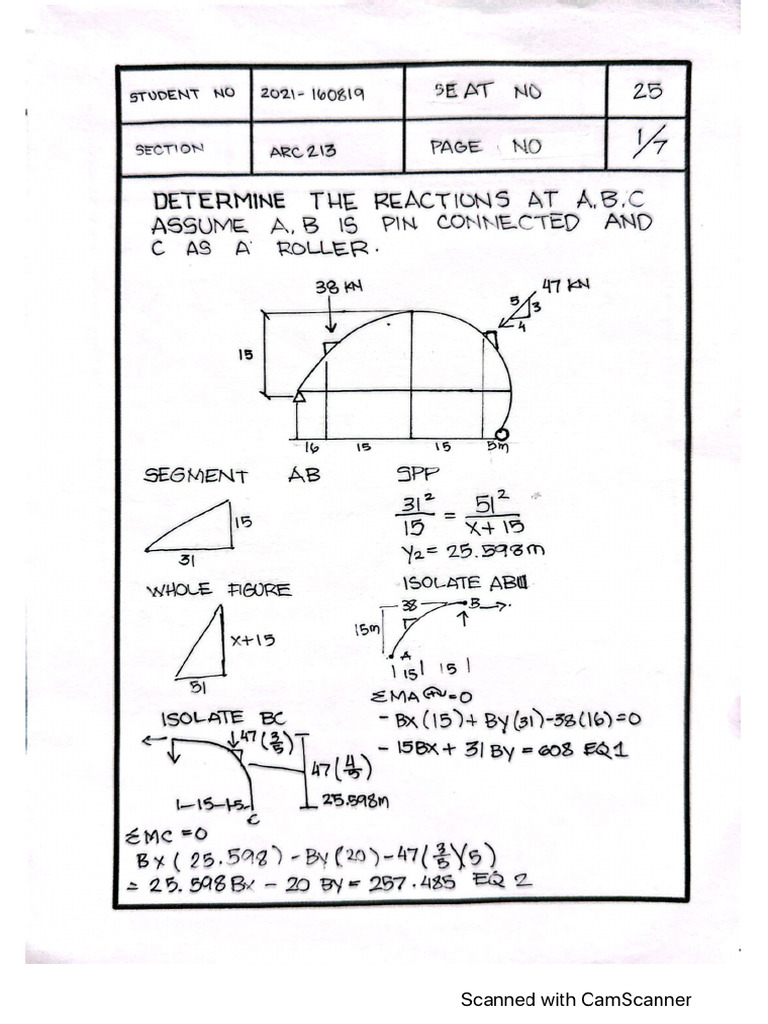 STUDENT NO 2021-160819 SEAT NO 25
SECTION ARC213 PAGE NO 1/7
DETERMINE THE REACTIONS AT A,B,C
ASSUME A,B IS PIN CONNECTED AND
C AS A ROLLER.
38 KN
47 KN
5
3
4
15
16 15 15 5m
SEGMENT AB
SPP
15
31
31²/15 = 51²/x+15
Y2 = 25.598m
WHOLE FIGURE
x+15
51
ISOLATE AB
38 B
15m
A
15 15
ΣMA =0
- Bx(15)+ By(31)-38(16)=0
- 15Bx + 31 By = 608 EQ1
ISOLATE BC
47(3/5)
47(4/5)
25.598m
15 5
C
ΣMC =0
Bx(25.598) - By(20) - 47(3/5)(5)
= 25.598Bx - 20 By = 257.485 EQ 2
Scanned with CamScanner